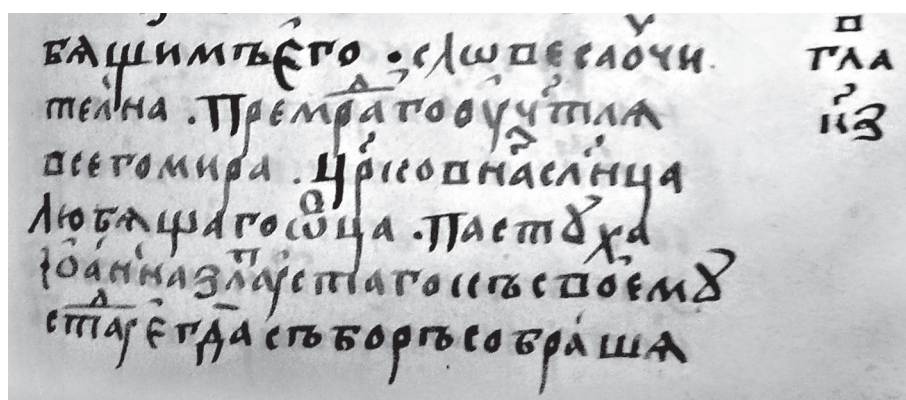 бѧщимъ є҆го · слѡвеса оучи глаⷡ
телна . Премрⷣаго оучт҃лѧ к҃з
всего мира . цр҃ковнаⷢ сл҃нца
любѧщаго ѿца . Пастꙋха
іѡанна злаⷮустаго къ своемꙋ
стаⷣу є҆гда съборъ собраша